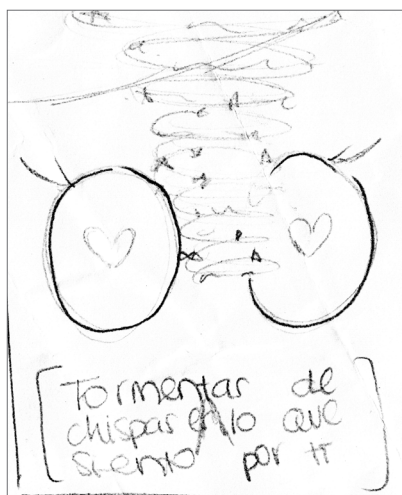 [Tormentas de
chispas en lo que
siento por ti]